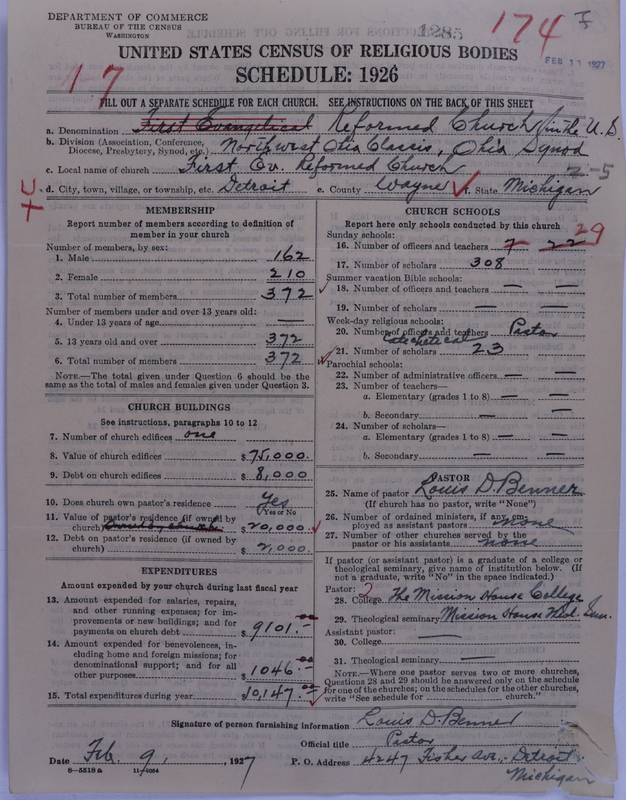 DEPARTMENT OF COMMERCE
BUREAU OF THE CENSUS
WASHINGTON
1285
174
FEB 11 1927
17
UNITED STATES CENSUS OF RELIGIOUS BODIES
SCHEDULE: 1926
FILL OUT A SEPARATE SCHEDULE FOR EACH CHURCH. SEE INSTRUCTIONS ON THE BACK OF THIS SHEET
a. Denomination First Evangelical Reformed Church in the U.S.
b. Division (Association, Conference, Diocese, Presbytery, Synod, etc.) Northwest Ohio Classis, Ohio Synod
c. Local name of church First Ev. Reformed Church
2-5
d. City, town, village, or township, etc. Detroit e. County Wayne f. State Michigan
MEMBERSHIP
Report number of members according to definition of
member in your church
Number of members, by sex:
1. Male 162
2. Female 210
3. Total number of members 372
Number of members under and over 13 years old:
4. Under 13 years of age —
5. 13 years old and over 372
6. Total number of members 372
NOTE.—The total given under Question 6 should be
same as the total of males and females given under Question 3.
CHURCH BUILDINGS
See instructions, paragraphs 10 to 12
7. Number of church edifices one
8. Value of church edifices $75,000.
9. Debt on church edifices $8,000
10. Does church own pastor's residence Yes
Yes or No
11. Value of pastor's residence (if owned by
church) $20,000.
12. Debt on pastor's residence (if owned by
church) $2,000.
EXPENDITURES
Amount expended by your church during last fiscal year
13. Amount expended for salaries, repairs,
and other running expenses; for im-
provements or new buildings; and for
payments on church debt $9101.—
14. Amount expended for benevolences, in-
cluding home and foreign missions; for
denominational support; and for all
other purposes $1046.00
15. Total expenditures during year $10,147.
CHURCH SCHOOLS
Report here only schools conducted by this church
Sunday schools: 29
16. Number of officers and teachers 7 22
17. Number of scholars 308
Summer vacation Bible schools:
18. Number of officers and teachers — —
19. Number of scholars — —
Week-day religious schools:
20. Number of officers and teachers Pastor
Catechetical
21. Number of scholars 23
Parochial schools:
22. Number of administrative officers — —
23. Number of teachers—
a. Elementary (grades 1 to 8) — —
b. Secondary — —
24. Number of scholars—
a. Elementary (grades 1 to 8) — —
b. Secondary — —
PASTOR
25. Name of pastor Louis D. Benner
(If church has no pastor, write "None")
26. Number of ordained ministers, if any, em-
ployed as assistant pastors none
27. Number of other churches served by the
pastor or his assistants none
If pastor (or assistant pastor) is a graduate of a college or
theological seminary, give name of institution below. (If
not a graduate, write "No" in the space indicated.)
Pastor: 2
28. College The Mission House College
29. Theological seminary Mission House Theol. Sem.
Assistant pastor:
30. College —
31. Theological seminary —
NOTE.—Where one pastor serves two or more churches,
Questions 28 and 29 should be answered only on the schedule
for one of the churches; on the schedules for the other churches,
write "See schedule for church."
Signature of person furnishing information Louis D. Benner
Official title Pastor
Date Feb. 9, 1927 P. O. Address 4247 Fisher Ave., Detroit
Michigan
8—5518 a 11—9064